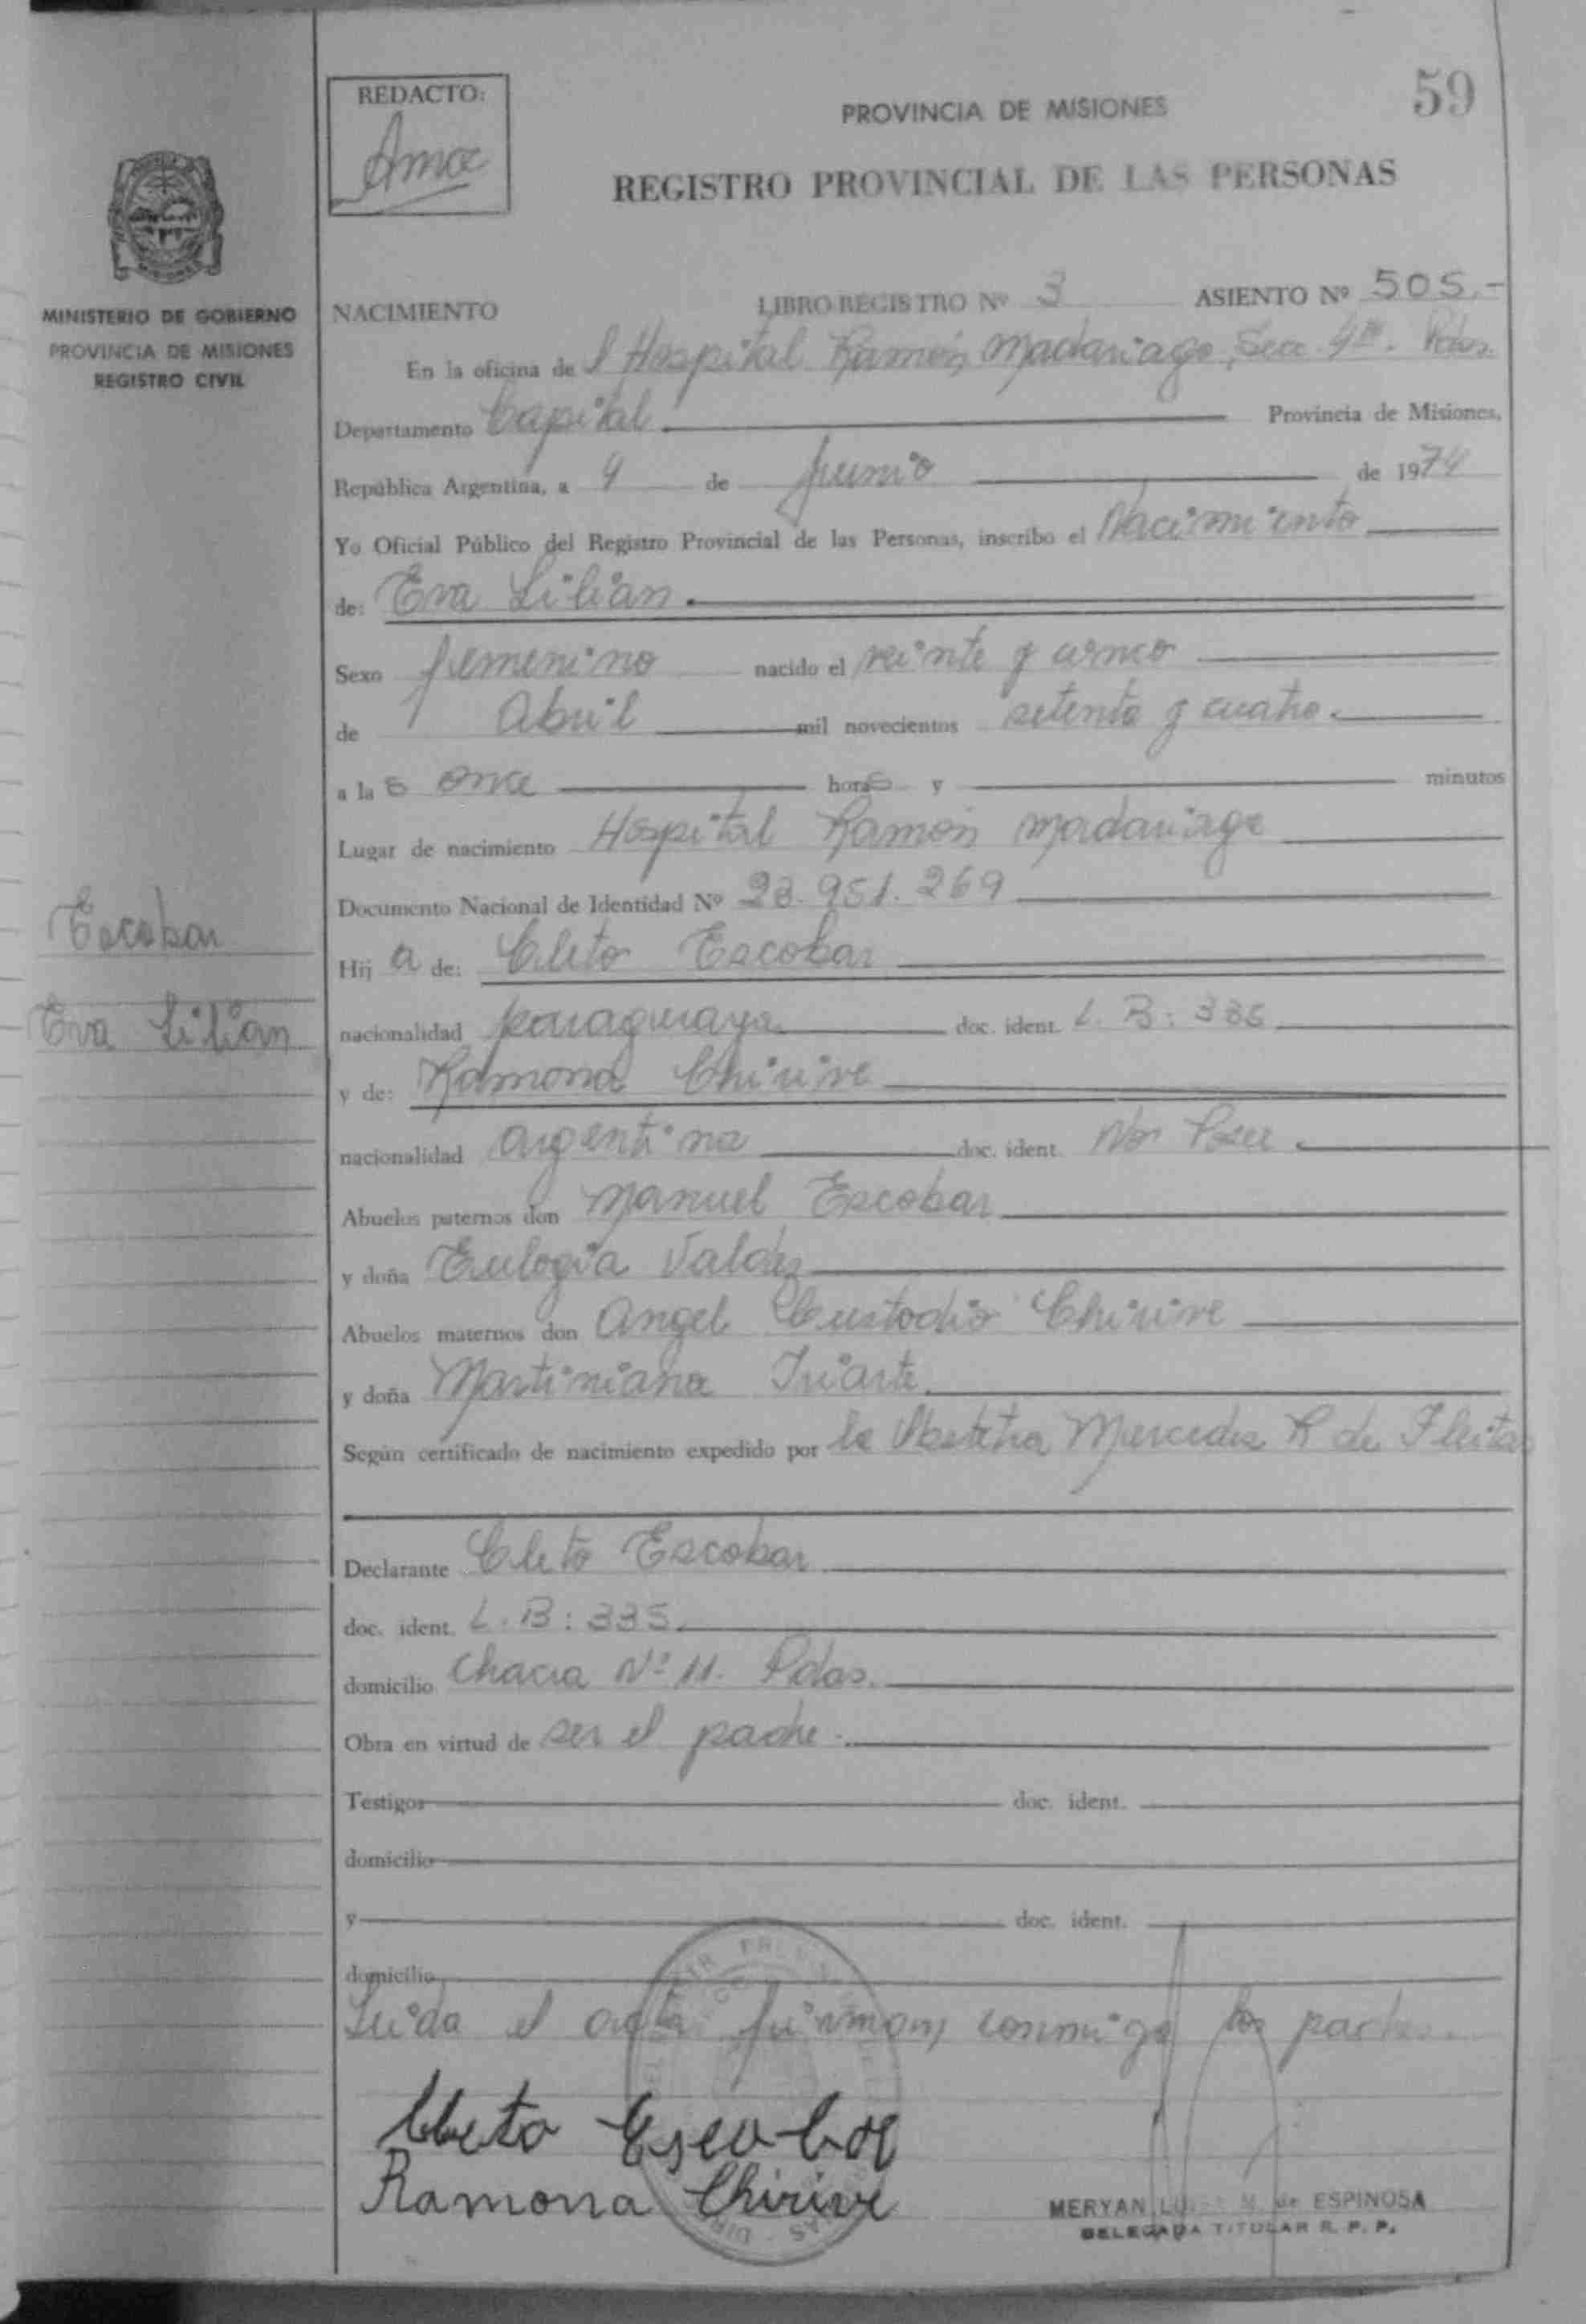 59
REDACTO:
PROVINCIA DE MISIONES
REGISTRO PROVINCIAL DE LAS PERSONAS
MINISTERIO DE GOBIERNO
PROVINCIA DE MISIONES
REGISTRO CIVIL
NACIMIENTO LIBRO REGISTRO Nº 3 ASIENTO Nº 505.-
En la oficina de l Hospital Ramón Madariaga, Secc. Pdas.
Departamento Capital. Provincia de Misiones,
República Argentina, a de junio de 1974
Yo Oficial Público del Registro Provincial de las Personas, inscribo el Nacimiento
de: Eva Lilian.
Sexo femenino nacido el veinte y cinco
de Abril mil novecientos setenta y cuatro.
a la s once horas y minutos
Lugar de nacimiento Hospital Ramón Madariaga
Documento Nacional de Identidad Nº 23.951.269
Escobar
Eva Lilian
Hij a de: Cleto Escobar
nacionalidad paraguaya doc. ident. L. B: 335
y de: Ramona Chirive
nacionalidad argentina doc. ident. No Posee.
Abuelos paternos don Manuel Escobar
y doña Eulogia Valdez
Abuelos maternos don Angel Custodio Chirive
y doña Martiniana Iriarte
Según certificado de nacimiento expedido por la Obstetra Mercedes R de Fleitas
Declarante Cleto Escobar
doc. ident. L. B: 335.
domicilio Chacra Nº 11. Pdas.
Obra en virtud de ser el padre.
Testigos doc. ident.
domicilio
y doc. ident.
domicilio
Leida el acta firman conmigo los padres.
Cleto Escobar
Ramona Chirive
MERYAN M. de ESPINOSA
DELEGADA TITULAR R. P. P.